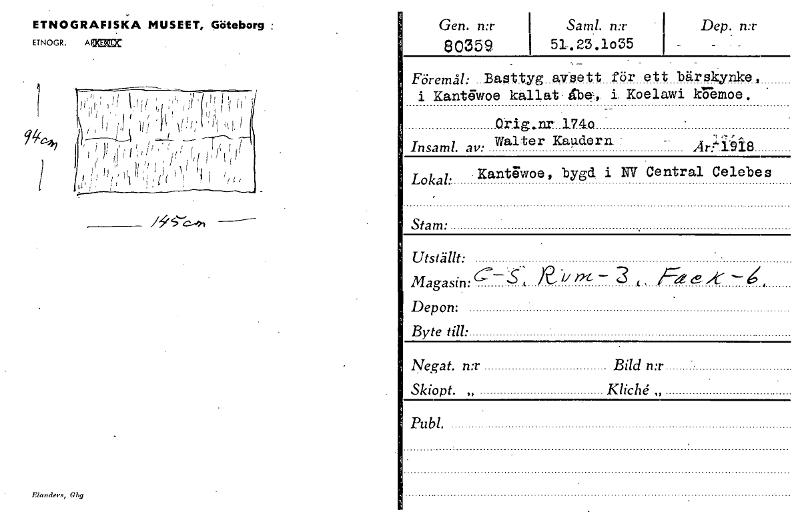 ETNOGRAFISKA MUSEET, Göteborg :
ETNOGR.
94cm
145cm
Elanders, Gbg
Gen. n:r Saml. n:r Dep. n:r
80359 51.23.1035 - - -
Föremål: Basttyg avsett för ett bärskynke,
i Kantēwoe kallat ábe, i Koelawi kōemoe.
Orig.nr 1740
Insaml. av: Walter Kaudern År: 1918
Lokal: Kantēwoe, bygd i NV Central Celebes
Stam:
Utställt:
Magasin: C-S. Rum-3. Fack-6.
Depon:
Byte till:
Negat. n:r Bild n:r
Skiopt. „ Kliché „
Publ.